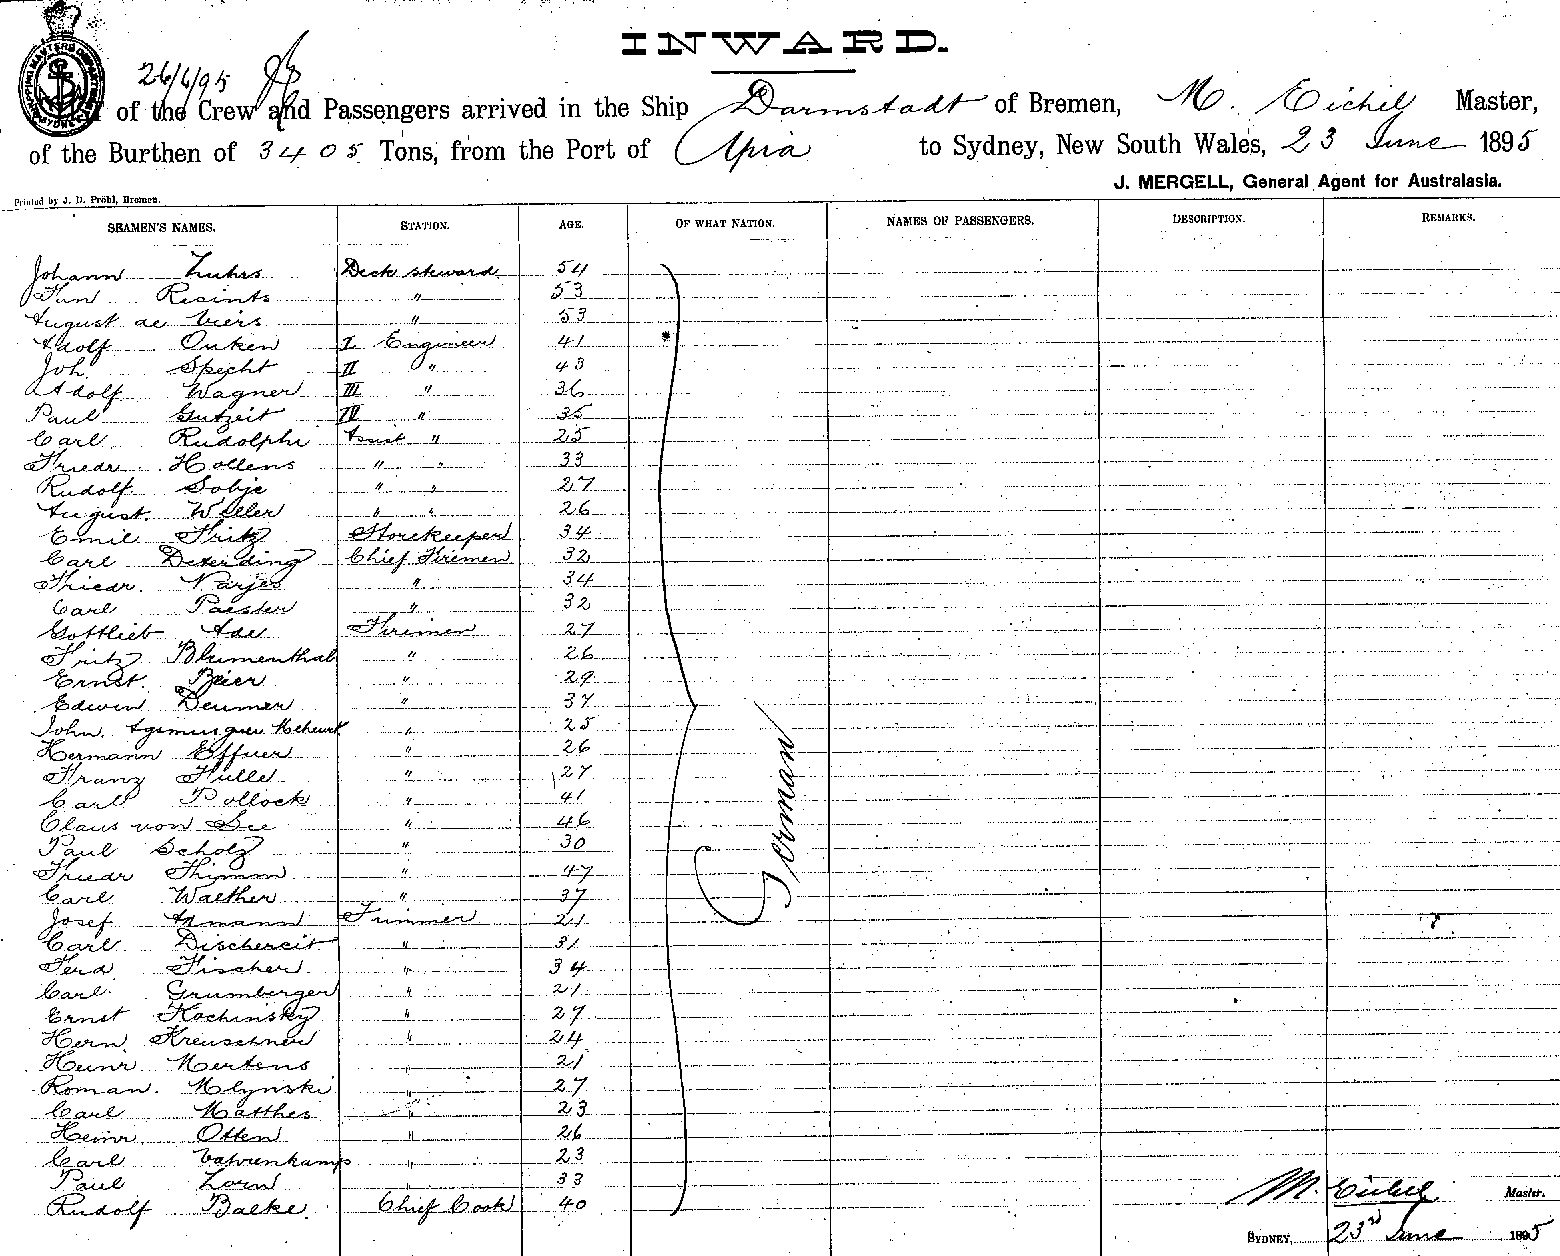 INWARD.
26/6/95
of the Crew and Passengers arrived in the Ship Darmstadt of Bremen, M. Eichel Master,
of the Burthen of 3405 Tons, from the Port of Apia to Sydney, New South Wales, 23 June 1895
J. MERGELL, General Agent for Australasia.
Printed by J. D. Pröhl, Bremen.
SEAMEN'S NAMES. STATION. AGE. OF WHAT NATION. NAMES OF PASSENGERS. DESCRIPTION. REMARKS.
Johann Luhrs Deck steward 54
Resints " 53
August de Viers " 53
Adolf Onken I Engineer 41
Joh. Specht II " 43
Adolf Wagner III " 36
Paul Gutzeit IV " 35
Carl Rudolphi Assist " 25
Friedr. Hollens " " 33
Rudolf Sobje " " 27
August. Weller " " 26
Emil Fritz Storekeeper 34
Carl Deterding Chief Firemen 32
Friedr. Narjes " 34
Carl Paester " 32
Gottlieb Ade Firemen 27
Fritz Blumenthal " 26
Ernst. Beier " 29
Edwin Deumer " 37
John. " 25
Hermann Effner " 26
Franz Hulle " 27
Carl Pollock " 41
Claus von See " 46
Paul Scholz " 30
Friedr Thimm " 47
Carl Walther " 37
Josef Asmann Trimmer 21
Carl Dischereit " 31
Ferd Fischer " 34
Carl Grumberger " 21
Ernst Kochinsky " 27
Herm. Kreuschner " 24
Heinr Mertens " 21
Roman. Mlynski " 27
Carl Matthes " 23
Heinr. Otten " 26
Carl Vahrenkamp " 23
Paul Zorn " 33
Rudolf Balke. Chief Cook 40
German
M. Eichel Master.
SYDNEY, 23rd June 1895